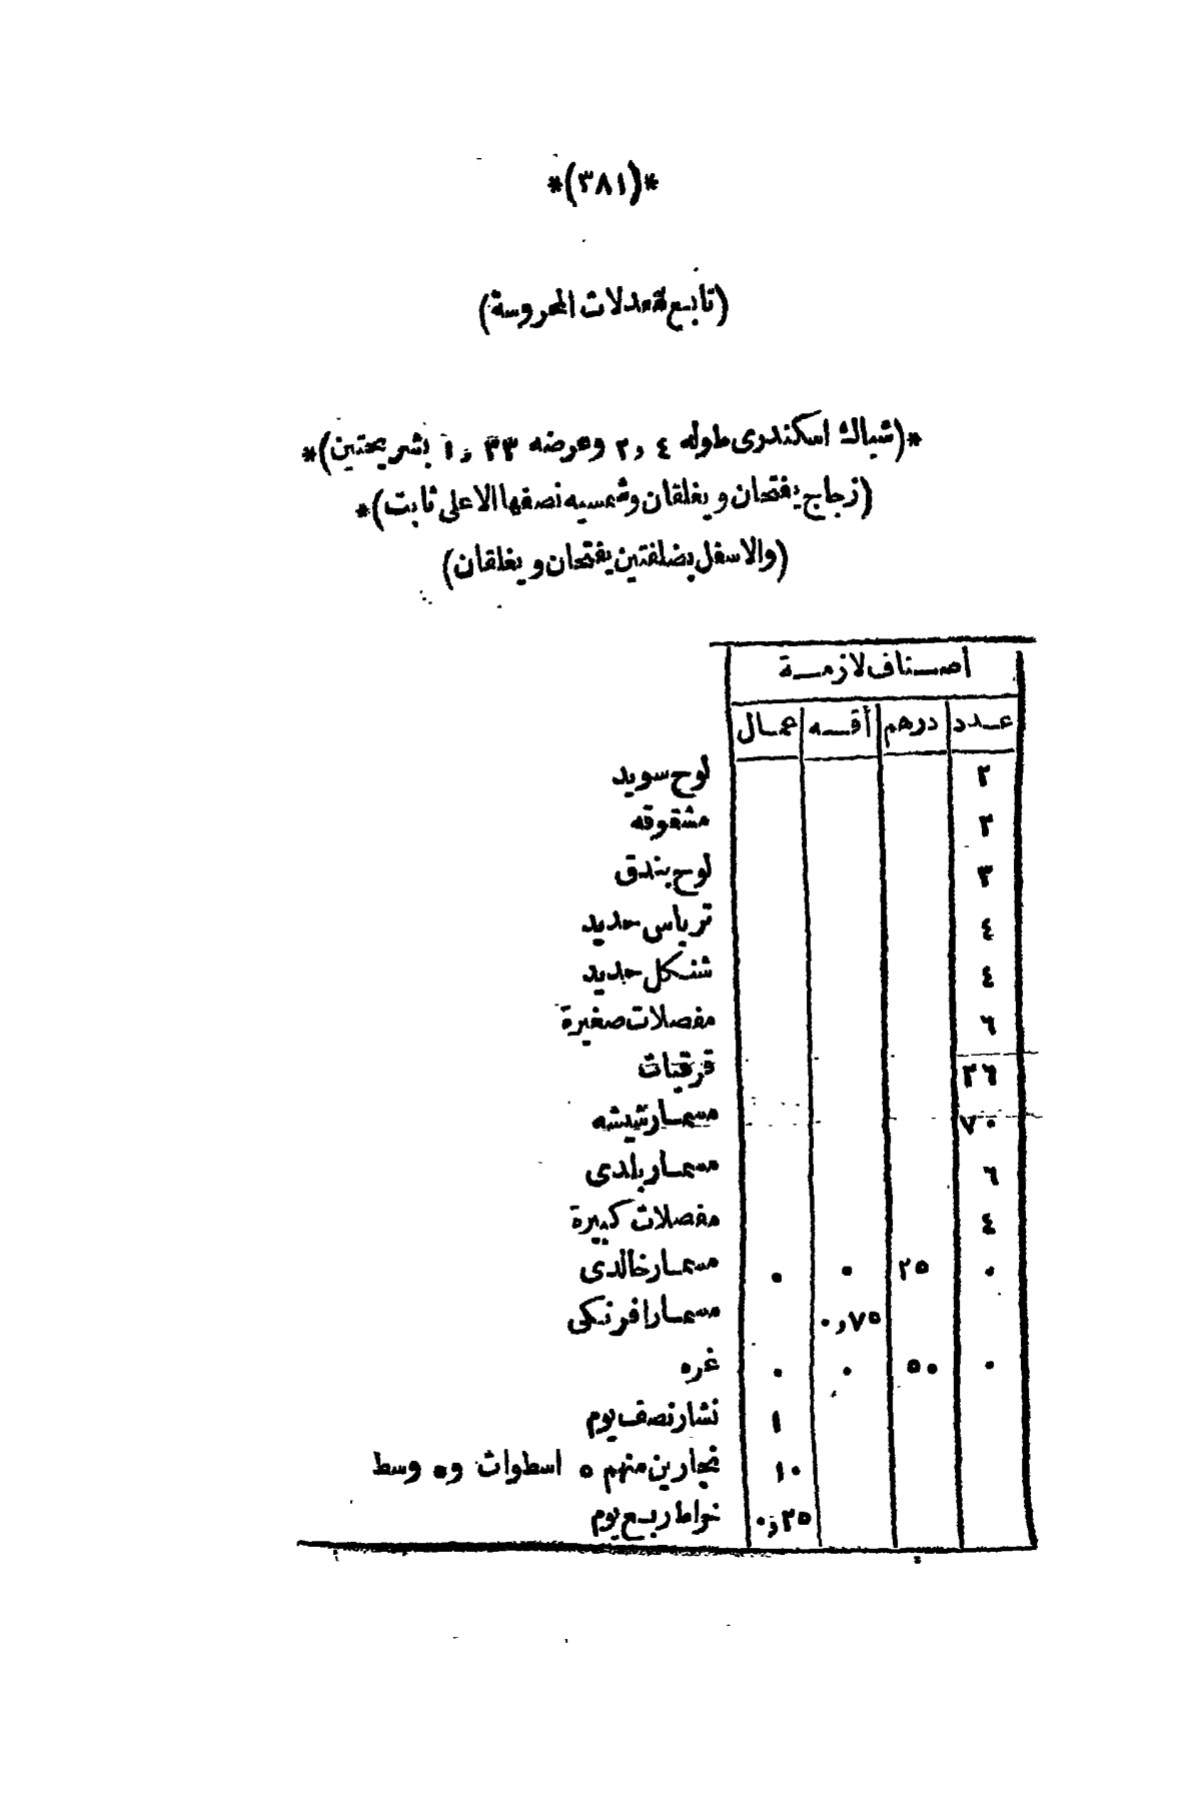 *(٣٨١)*
(تابع معدلات المحروسة)
*(شباك اسكندرى طوله ٢,٤ وعرضه ١,٣٣ بشريحتين)*
(زجاج يفتحان ويغلقان وشمسيه نصفها الاعلى ثابت)*
(والاسفل بضلفتين يفتحان ويغلقان)
أصناف لازمة
عدد درهم أقه عمال
٢ لوح سويد
٢ مشقوقه
٣ لوح بندق
٤ ترباس حديد
٤ شنكل حديد
٦ مفصلات صغيرة
٢٦ قرقبات
٧٠ مسمار شيشه
٦ مسمار بلدى
٤ مفصلات كبيرة
٠ ٢٥ ٠ ٠ مسمار خالدى
٠,٧٥ مسمار افرنكى
٠ ٥٠ ٠ ٠ غره
١ نشار نصف يوم
١٠ نجارين منهم ٥ اسطوات و٥ وسط
٠,٢٥ خراط ربع يوم